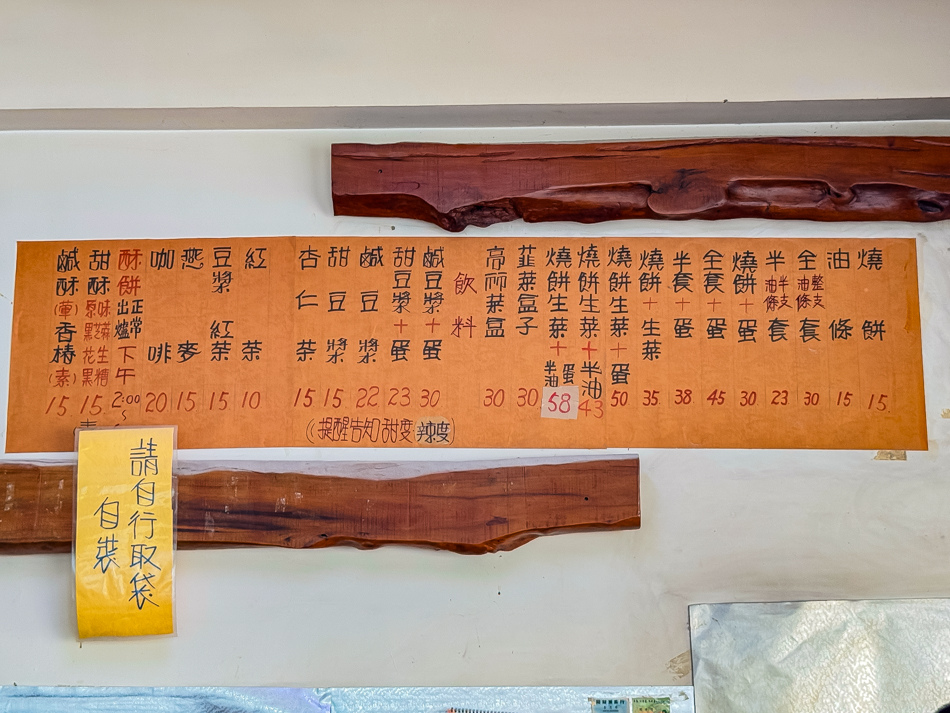 燒餅 15
油條 15
全套 油條整支 30
半套 油條半支 23
燒餅+蛋 30
全套+蛋 45
半套+蛋 38
燒餅+生菜 35
燒餅生菜+蛋 50
燒餅生菜+半油 43
燒餅生菜+半油蛋 58
韮菜盒子 30
高所菜盒 30
飲料
鹹豆漿+蛋 30
甜豆漿+蛋 23
鹹豆漿 22
甜豆漿 15
杏仁茶 15
(提醒告知甜度辣度)
紅茶 10
豆漿紅茶 15
燕麥 15
咖啡 20
酥餅 正常出爐下午2:00~
甜酥 原味 黑芝蔴 花生 黑糖 15
鹹酥 (葷) 香椿 (素) 15
請自行取袋
自裝